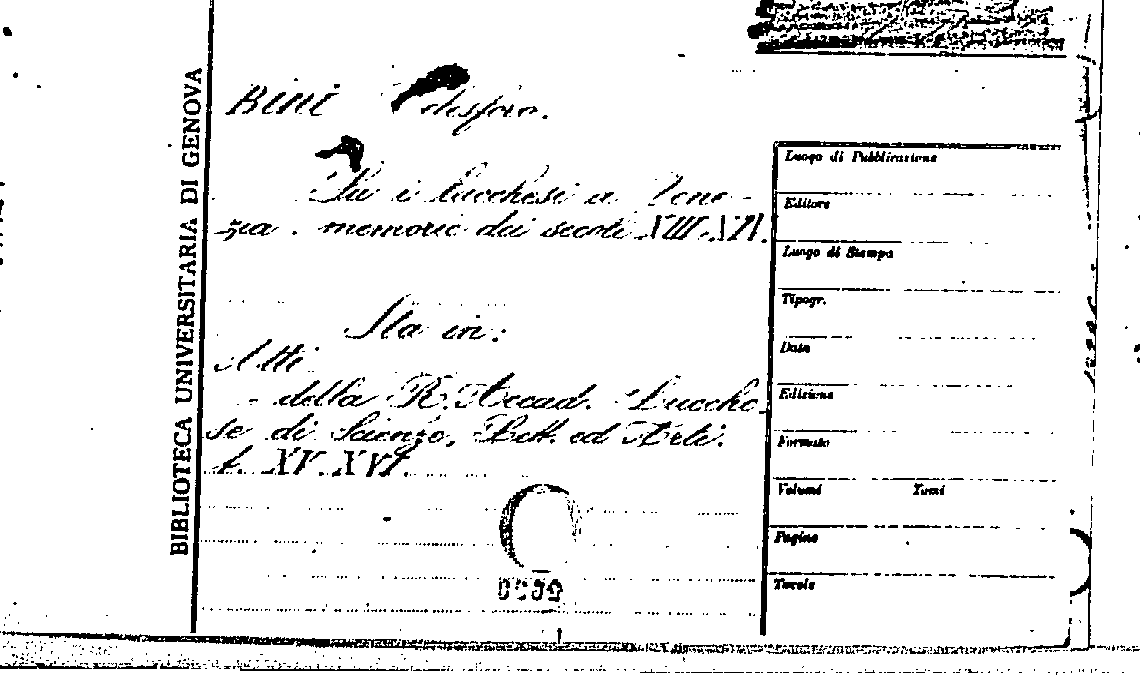 BIBLIOTECA UNIVERSITARIA DI GENOVA
BINI
Su i Lucchesi a Vene-
zia. memorie dei secoli XIII-XIV.
Sta in:
Atti
della R. Accad. Lucche
se di Scienze, Lett. ed Arti.
t. XV-XVI.
Luogo di Pubblicazione
Editore
Luogo di Stampa
Tipogr.
Data
Edizione
Formato
Volumi Tomi
Pagine
Tavole